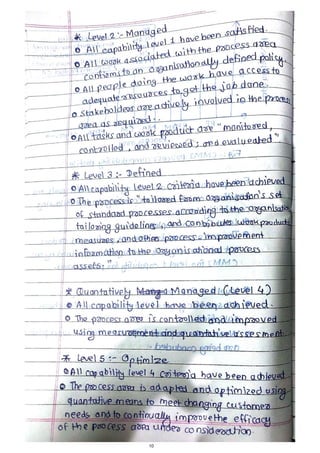 * Level 2 :- Managed
o All capability level 1 have been satisfied.
o All work associated with the process area
conforms to an organisationally defined policy.
o All people doing the work have access to
adequate resources to get the job done
o Stakeholders are actively involved in the process
area as required :-
o All tasks and work product are "monitored,
controlled, and reviewed; and evaluated"
* Level 3 :- Defined
o All capability level 2 criteria have been achieved
o The process is "tailored from organisation's set
of standard processes according to the organisation
tailoring guidelines, and contributes work products
measures, and other process-improvement
information to the organisational process
assets."
* Quantatively Managed (Level 4)
o All capability level have been achieved.
o The process area is controlled and improved
using measurement and quantative assesment
* Level 5 :- Optimize
o All capability level 4 criteria have been achieved
o The process area is adapted and optimized using
quantative means to meet changing customer
needs and to continually improve the efficacy
of the process area under consideration.
10